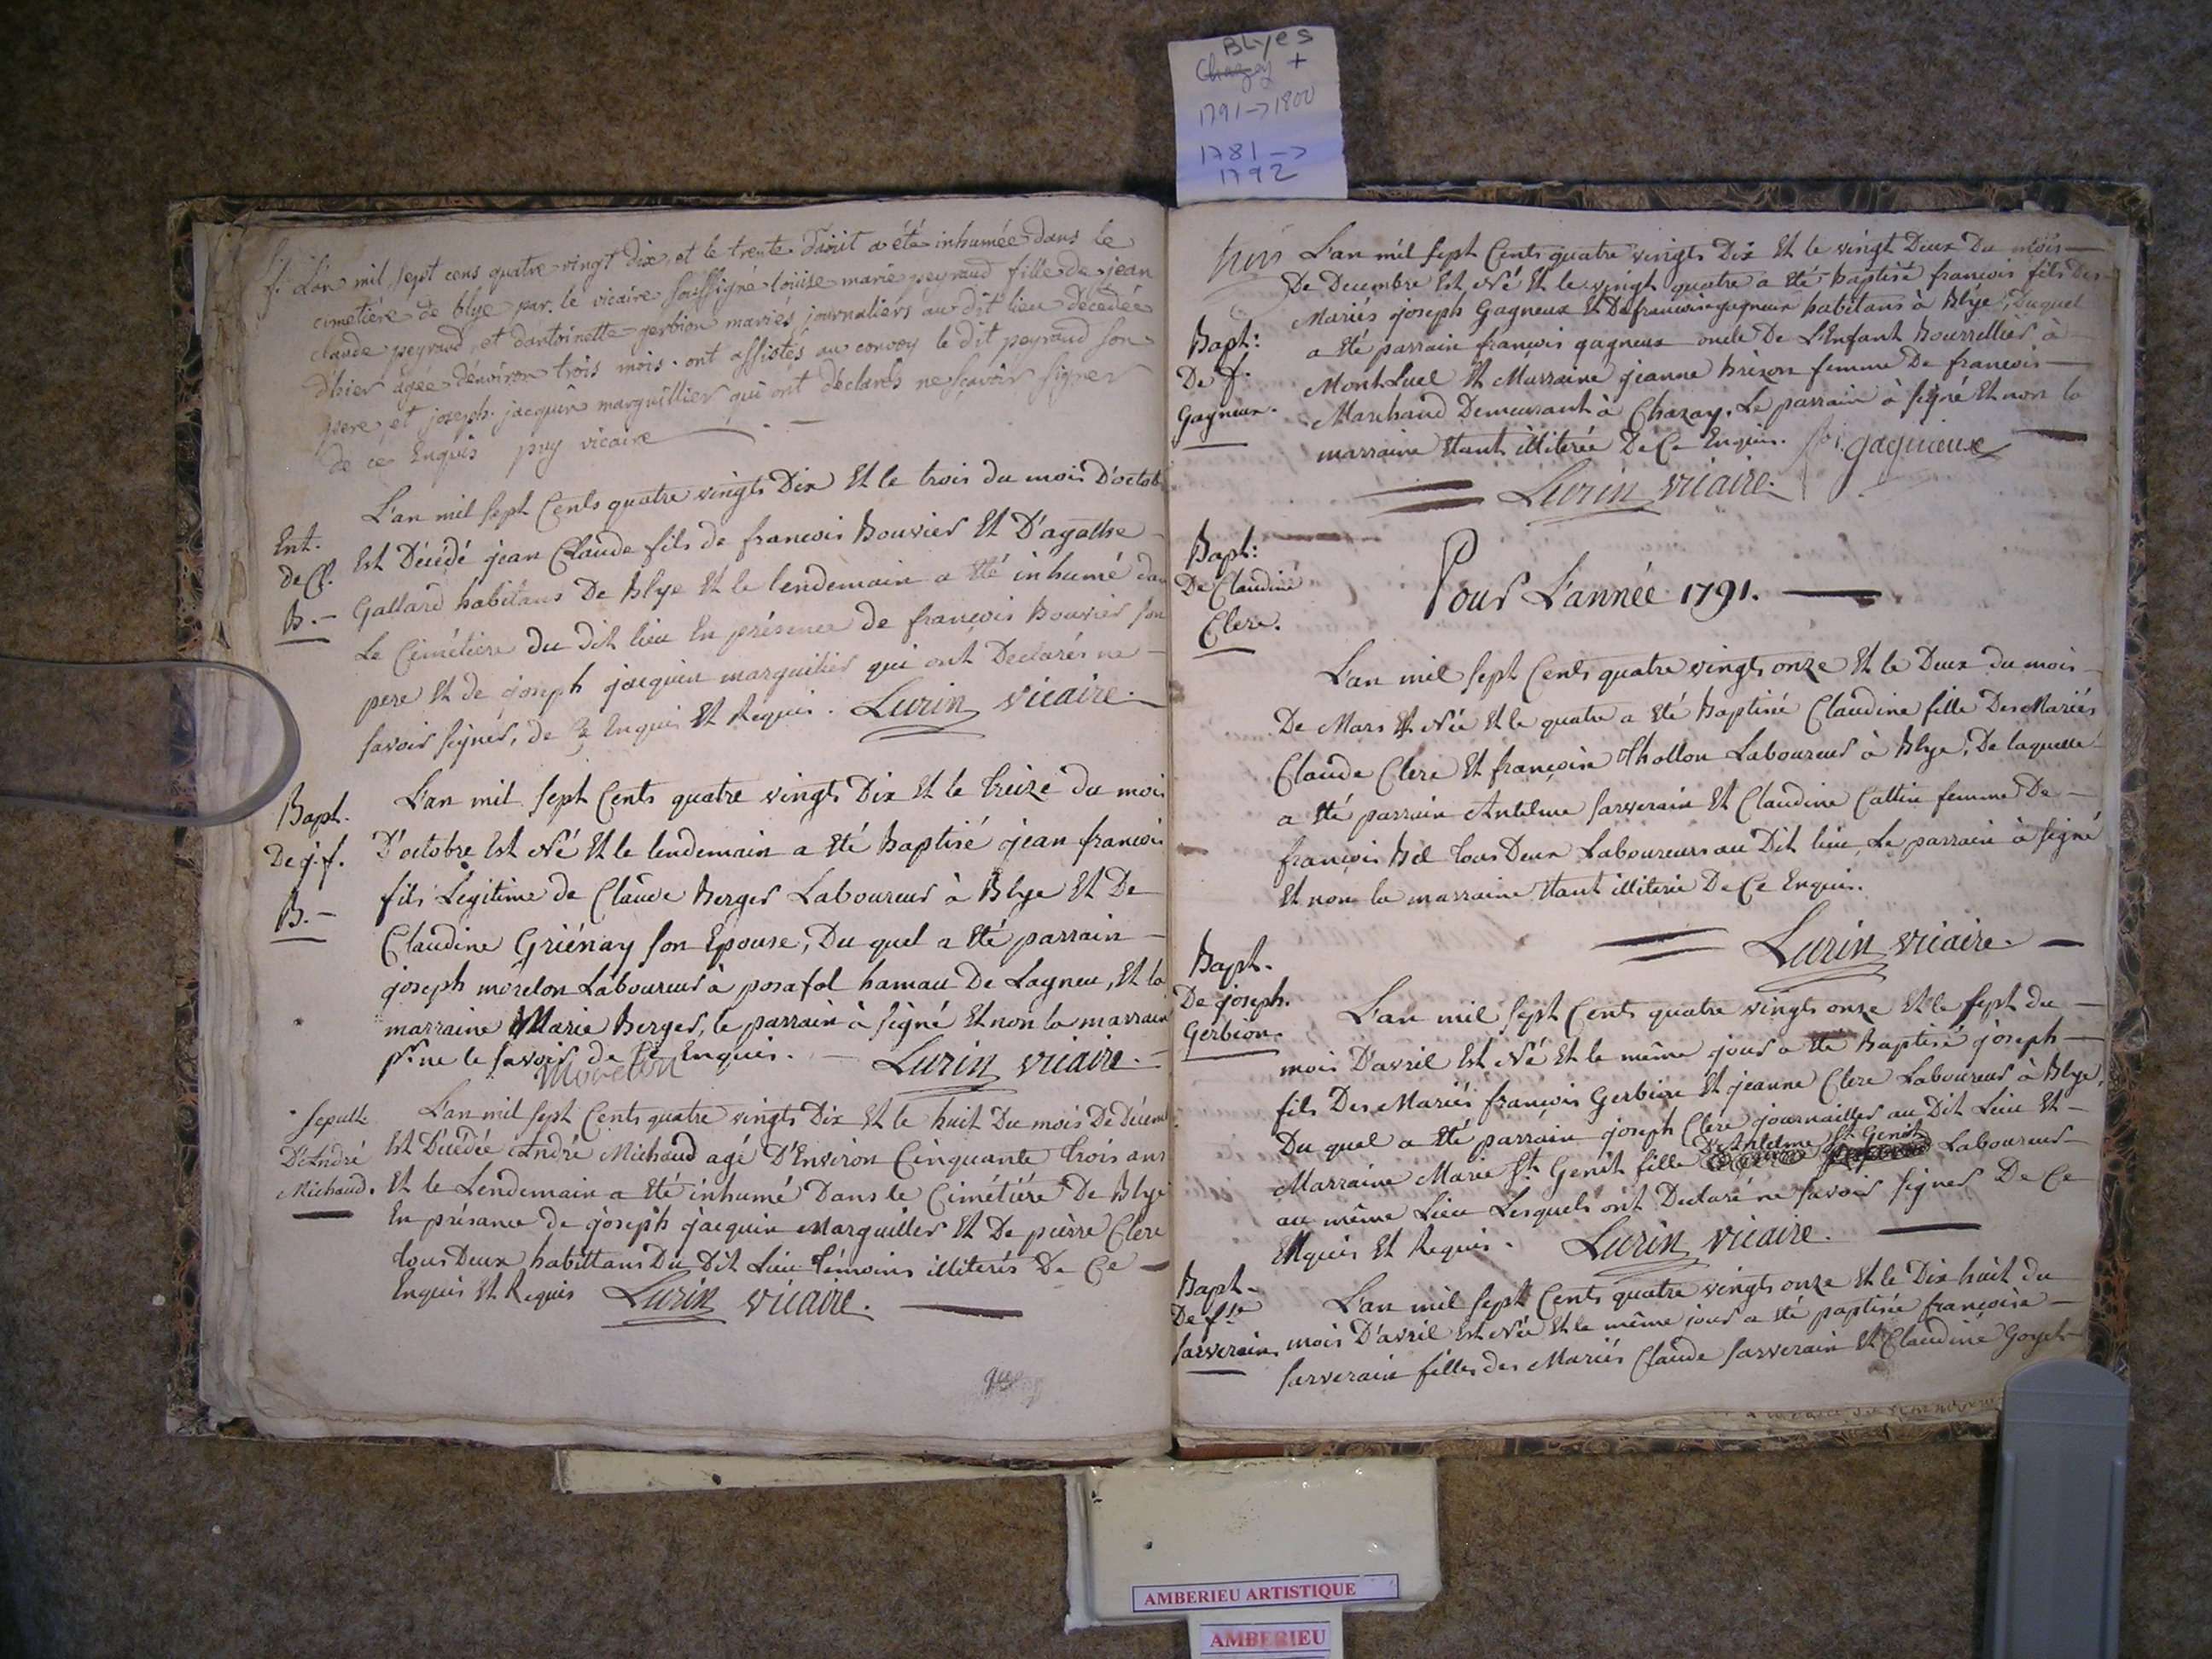 BLyes
Chazey +
1791->1800
1781->
1792
f. L'an mil sept cens quatre vingt dix, et le trente d'aoüt a été inhumée dans le
cimetière de blye par le vicaire soussigné louise marie peyraud fille de jean
claude peyraud, et d'antoinette gerbion mariés journaliers au dit lieu décédée
d'hier âgée d'environ trois mois. ont assistés au convoy le dit peyraud son
pere, et joseph jacquin marguillier qui ont déclarés ne sçavoir signer
de ce Enquis puy vicaire
Ent.
de Cl.
B. -
L'an mil sept Cents quatre vingts Dix Et le trois du mois D'octob
Est Décédé jean Claude fils de francois Bouvier Et D'agathe
Gallard habitans De Blye Et le lendemain a Eté inhumé dan
Le Cimétiere du Dit lieu En présence de françois Bouvier son
pere Et de joseph jacquin marguilier qui ont Declarés ne
savoir signer, de ce Enquis Et Requis. Lurin vicaire.
Bapt.
De j. f.
B. -
L'an mil sept Cents quatre vingts Dix Et le treize du mois
D'octobre Est Né Et le lendemain a Eté Baptisé jean francois
fils Legitime de Claude Berger Laboureur à Blye Et De
Claudine Griénay son Epouse, Du quel a Eté parrain
joseph morelon Laboureur à posafol hamau De Lagneu, Et la
marraine Marie Berger, le parrain à signé Et non la marrain
pr. ne le savoir de Ce Enquis. - Lurin vicaire. -
Morelon
Sepult.
D'André
Michaud.
L'an mil sept Cents quatre vingts Dix Et le huit Du mois De Décem
Est Décédée André Michaud agé D'Environ Cinquante trois ans
Et le Lendemain a Eté inhumé Dans le Cimétiére De Blye
En présance de joseph jacquin Marguiller Et De pierre Clere
tous Deux habittans Du Dit Lieu témoins illiterés De Ce
Enquis Et Requis Lurin vicaire.
Bapt:
De f.
Gagneux.
L'an mil sept Cents quatre vingts Dix Et le vingt Deux Du mois
De Decembre Est Né Et le vingt quatre a Eté Baptisé francois fils Des
Mariés joseph Gagneux Et De francoise gagneux habitans à Blye, Duquel
a Eté parrain francois gagneux oncle De L'Enfant Bourrellier à
MontLuel Et Marraine jeanne Brizon femme De francois
Marchand Demeurant à Chazay. Le parrain à signé Et non la
marraine Etant illiterée De Ce Enquise. gagnieux
Lurin vicaire.
Bapt:
De Claudine
Clere.
Pour L'année 1791.
L'an mil sept Cents quatre vingts onze Et le Deux du mois
De Mars Est Née Et le quatre a Eté Baptisée Claudine fille Des Mariés
Claude Clere Et françoise Thollon Laboureur à Blye, De laquelle
a Eté parrain Antelme Sarverain Et Claudine Cattin femme De
françois Bel tous Deux Laboureurs au Dit lieu, Le parrain à signé
Et non la marraine Etant illiterée De Ce Enquise.
Lurin vicaire.
Bapt.
De joseph.
Gerbion.
L'an mil sept Cents quatre vingts onze Et le sept du
mois D'avril Est Né Et le même jour a Eté Baptisé joseph
fils Des Mariés françois Gerbion Et jeanne Clere Laboureur à Blye,
Du quel a Eté parrain joseph Clere journailler au Dit Lieu Et
D'Antelme St. Genit
Marraine Marie St. Genit fille Laboureur
au même Lieu Lesquels ont Declaré ne savoir signer De Ce
Enquis Et Requis. Lurin vicaire.
Bapt.
De fse
Sarverain
L'an mil sept Cents quatre vingts onze Et le Dix huit du
mois D'avril Est Née Et le même jour a Eté paptisée françoise
Sarverain filles des Mariés Claude Sarverain Et Claudine Goyet
AMBERIEU ARTISTIQUE
AMBERIEU